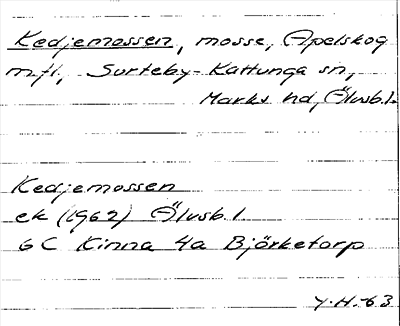 Kedjemossen, mosse, Apelskog
m.fl., Surteby-Kattunga sn,
Marks hd, Älvsb.l.
Kedjemossen
ek (1962) Älvsb.l.
6C Kinna 4a Björketorp
Y.H.-63